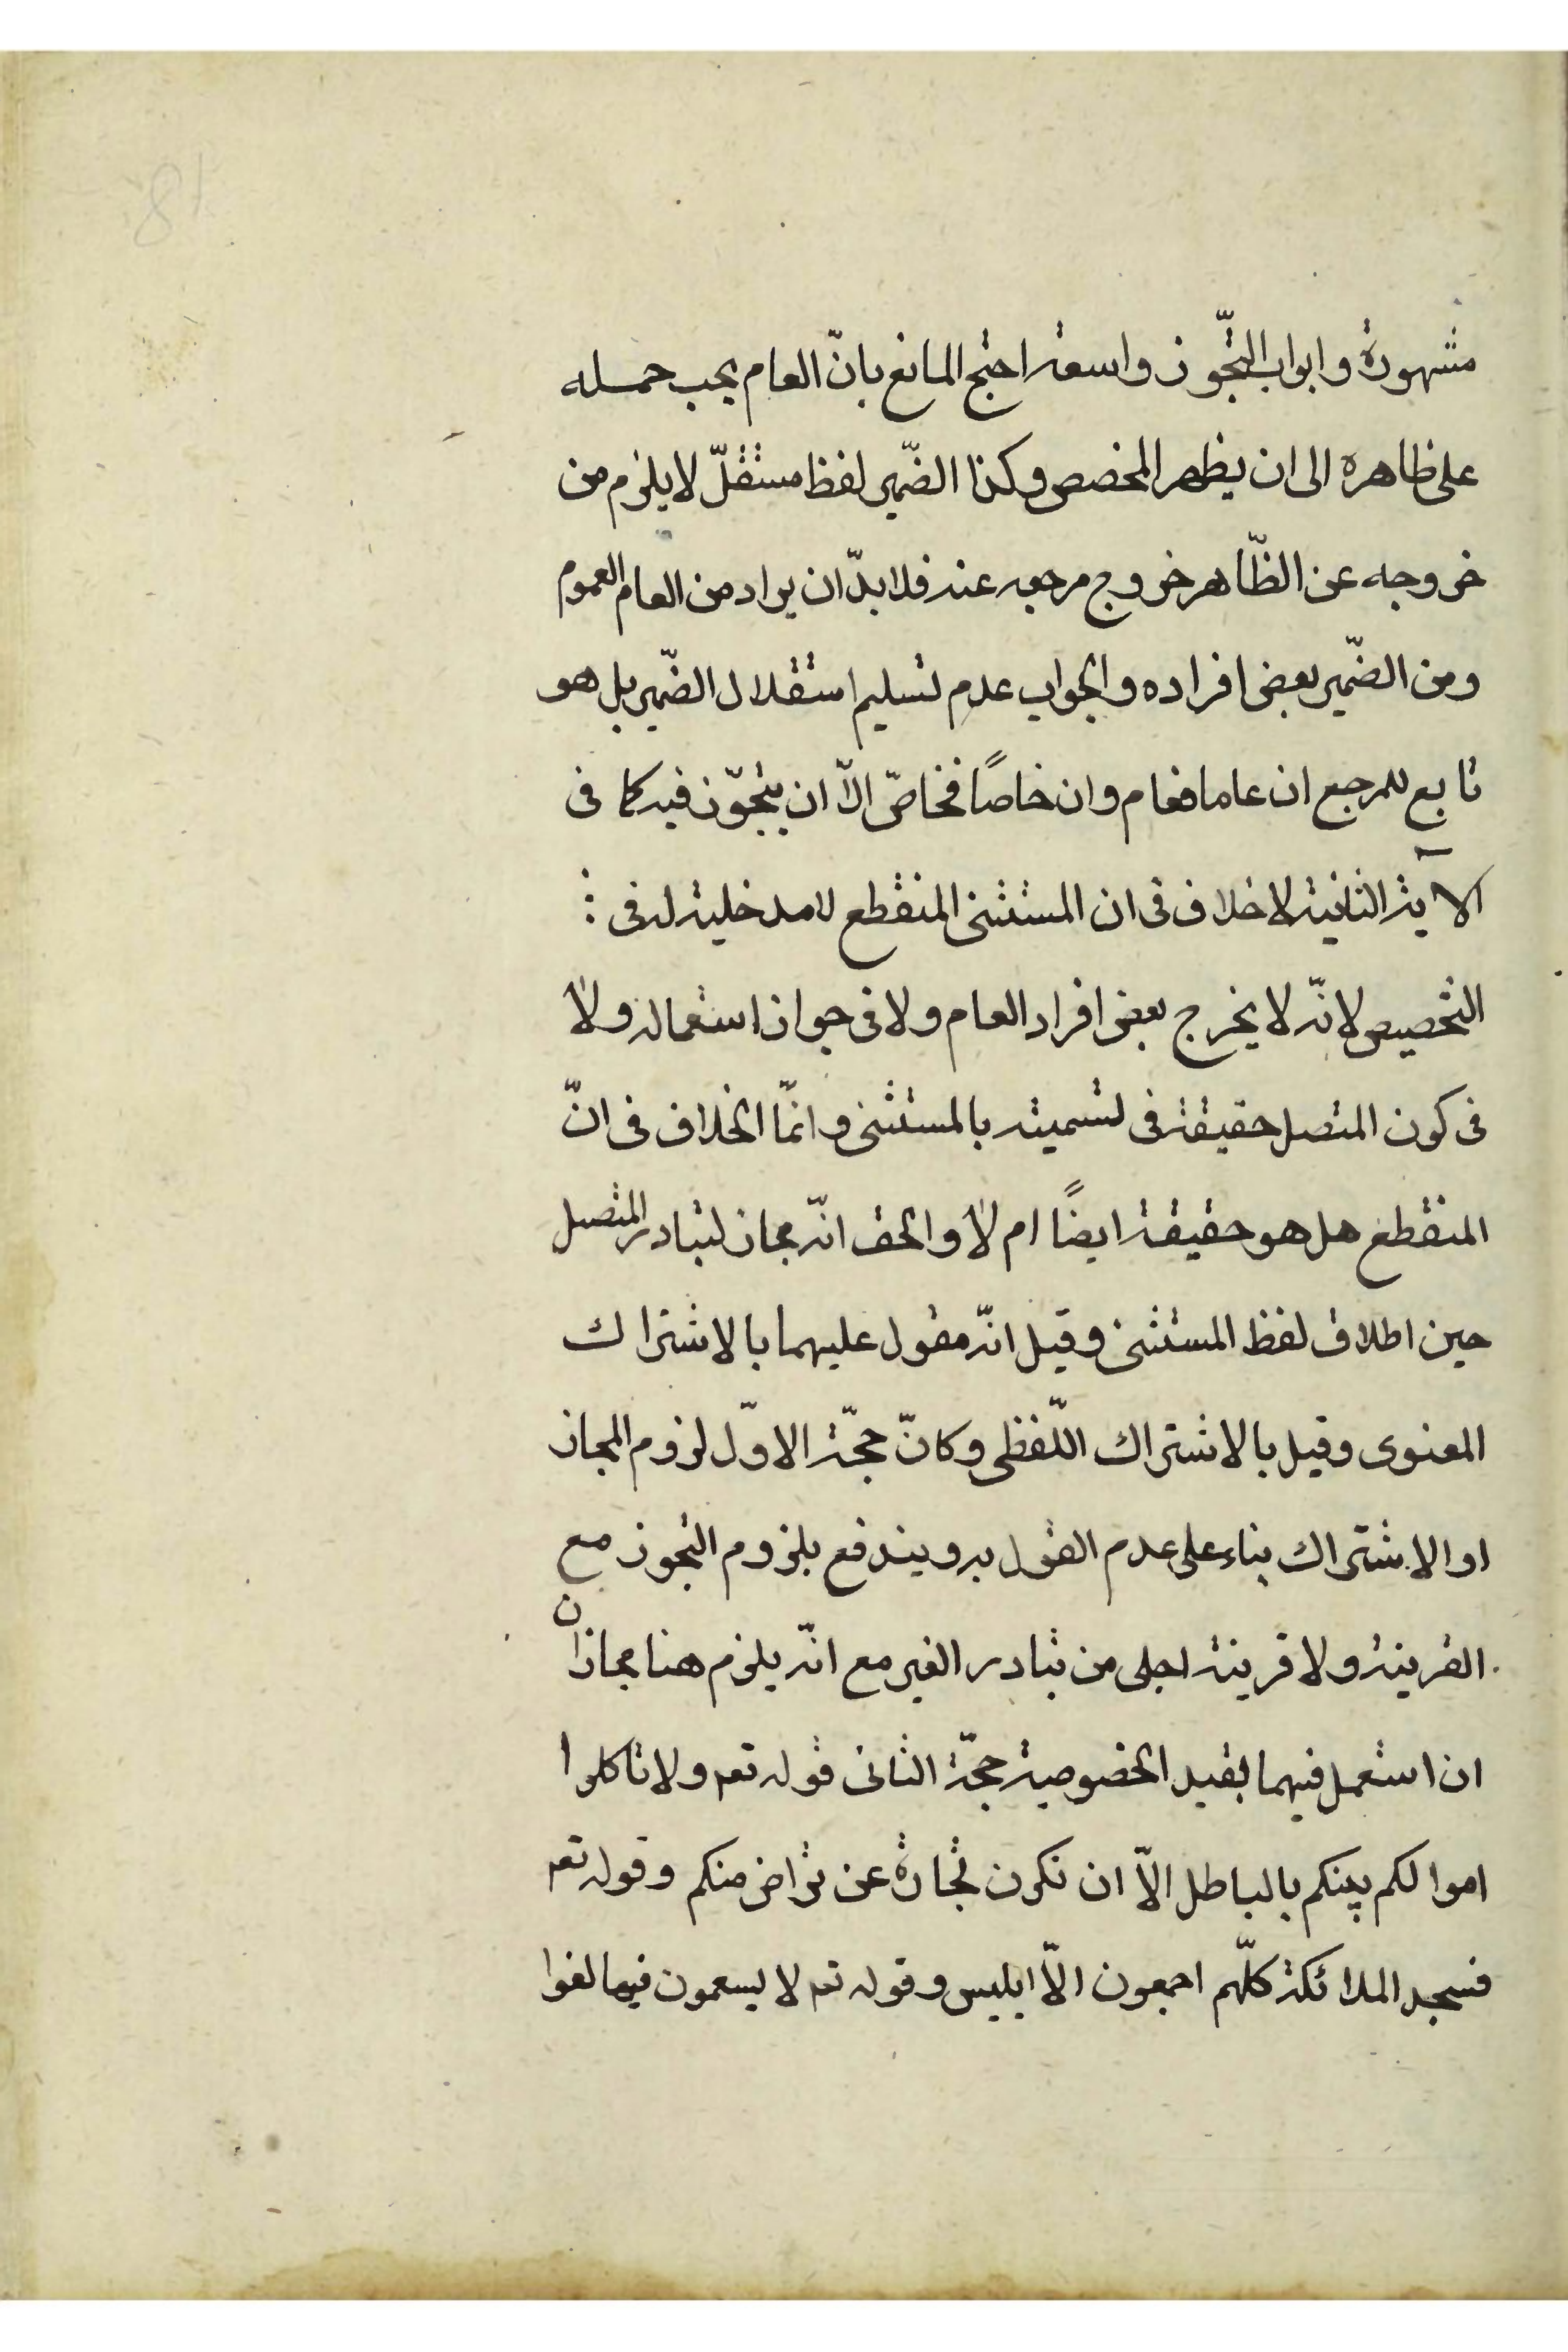 مشهورة وابواب التجّوز واسعة احتج المانع بانّ العام يجب حمله
على ظاهره الى ان يظهر المخصص وكذا الضّمير لفظ مستقلّ لا يلزم من
خروجه عن الظّاهر خروج مرجعه عنه فلا بدّ ان يراد من العام العموم
ومن الضّمير بعض افراده والجواب عدم تسليم استقلال الضّمير بل هو
تابع للمرجع ان عاما فعام وان خاصًا فخاصّ الّا ان يتجوّز فيه كما فى
الآية الثانية لا خلاف فى ان المستثنى المنقطع لا مدخلية له فى
التخصيص لانّه لا يخرج بعض افراد العام ولا فى جواز استعماله ولا
فى كون المتصل حقيقة فى تسميته بالمستثنى وانّما الخلاف فى انّ
المنقطع هل هو حقيقة ايضًا ام لا والحق انّه مجاز لتبادر المتصل
حين اطلاق لفظ المستثنى وقيل انّه مقول عليهما بالاشتراك
المعنوى وقيل بالاشتراك اللّفظى وكانّ حجّة الاوّل لزوم المجاز
او الاشتراك بناء على عدم القول به ويندفع بلزوم التجوز مع
القرينة ولا قرينة اجلى من تبادر الغير مع انّه يلزم هنا مجازان
ان استعمل فيهما بقيد الخصوصية حجّة الثانى قوله تعہ ولا تاكلوا
اموالكم بينكم بالباطل الّا ان تكون تجارة عن تراض منكم وقوله تعہ
فسجد الملائكة كلّهم اجمعون الّا ابليس وقوله تعہ لا يسعمون فيها لغوا
81